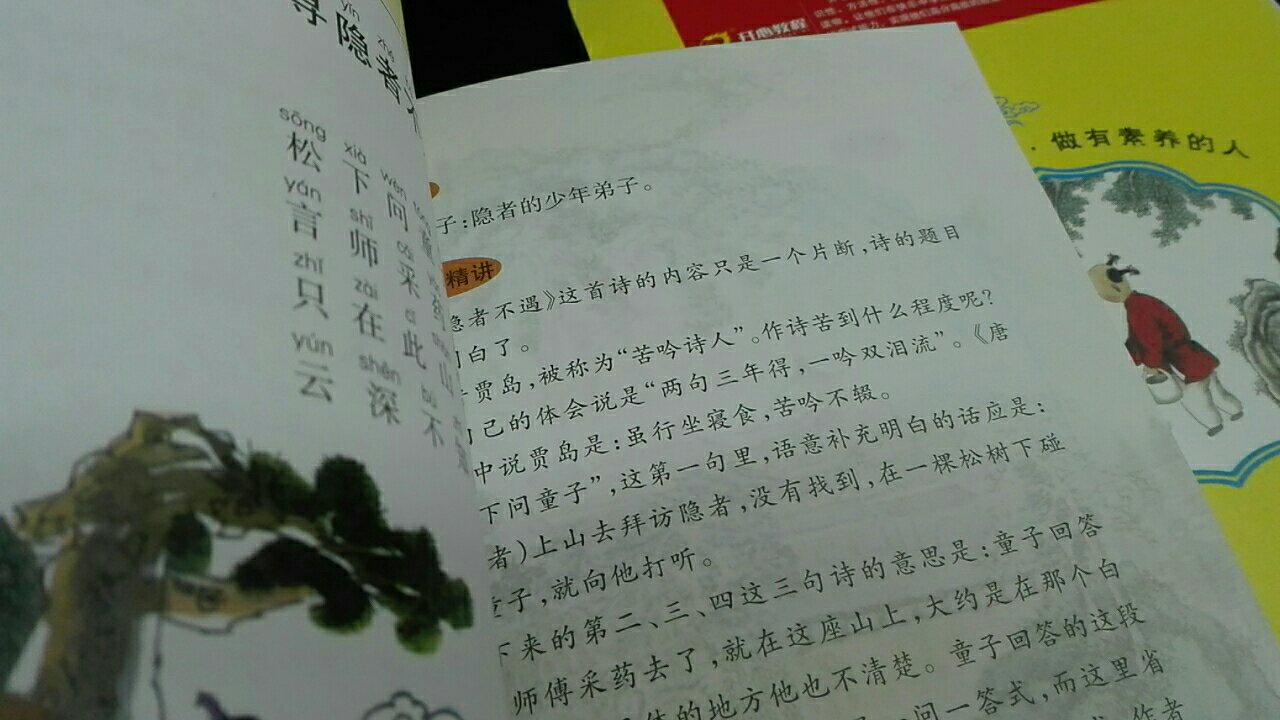 yǐn zhě
寻隐者
sōng xià wèn
松下问童
yán shī cǎi
言师采药
zhǐ zài cǐ shān
只在此山
yún shēn bù
云深不
子:隐者的少年弟子。
精讲
隐者不遇》这首诗的内容只是一个片断,诗的题目
白了。
贾岛,被称为“苦吟诗人”。作诗苦到什么程度呢?
己的体会说是“两句三年得,一吟双泪流”。《唐
中说贾岛是:虽行坐寝食,苦吟不辍。
下问童子”,这第一句里,语意补充明白的话应是:
者)上山去拜访隐者,没有找到,在一棵松树下碰
童子,就向他打听。
下来的第二、三、四这三句诗的意思是:童子回答
师傅采药去了,就在这座山上,大约是在那个白
体的地方他也不清楚。童子回答的这段
一问一答式,而这里省
作者
开心教程
做有素养的人